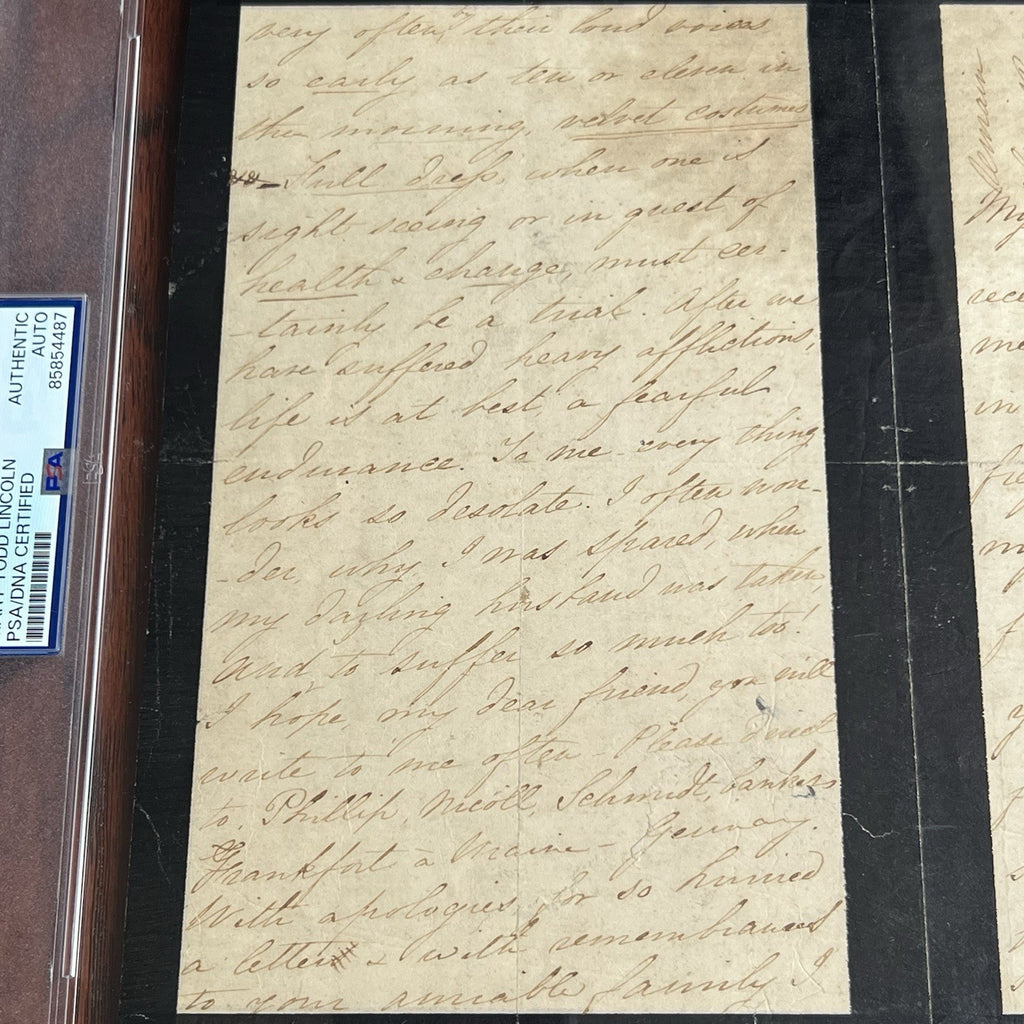 very often, their loud voices
so early as ten or eleven in
the morning, velvet costumes
Full dress, when one is
sight seeing or in quest of
health & change, must cer-
-tainly be a trial. After we
have suffered heavy afflictions,
life is at best, a fearful
endurance. To me every thing
looks so desolate. I often won-
-der, why, I was spared, when
my darling husband was taken,
and to suffer so much too!
I hope, my dear friend, you will
write to me often - Please direct
to, Phillip, Nicoll, Schmidt, bankers
Frankfort a Maine - Germany.
With apologies for so hurried
a letter & with remembrances
to your amiable family I
remain
My
rece
me
in
AUTHENTIC
AUTO
85854487
PSA
TODD LINCOLN
PSA/DNA CERTIFIED